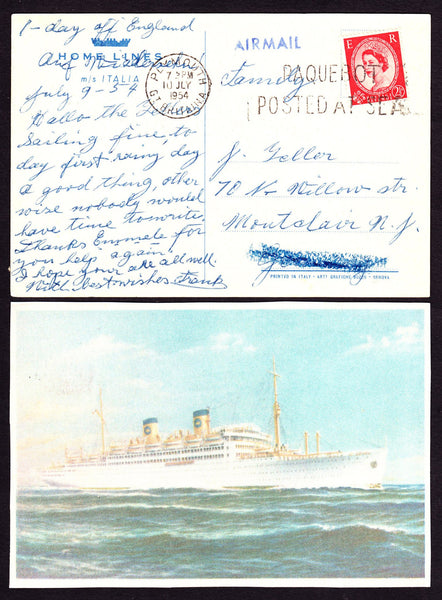 1-day off England
HOME LINES
m/s ITALIA
July 9-54
Hallo the
Sailing fine, to
day first rainy day
a good thing, other
wise nobody would
have time to write.
Thanks Emmele for
you help again!
I hope your are all well.
With best wishes Frank
AIRMAIL
PLYMOUTH
7 PM
10 JLY
1954
GT. BRITAIN
PAQUEBOT
POSTED AT SEA
E R
2½D
Family
J. Feller
70 No Willow str.
Montclair N. J.
PRINTED IN ITALY - ARTI GRAFICHE - GENOVA